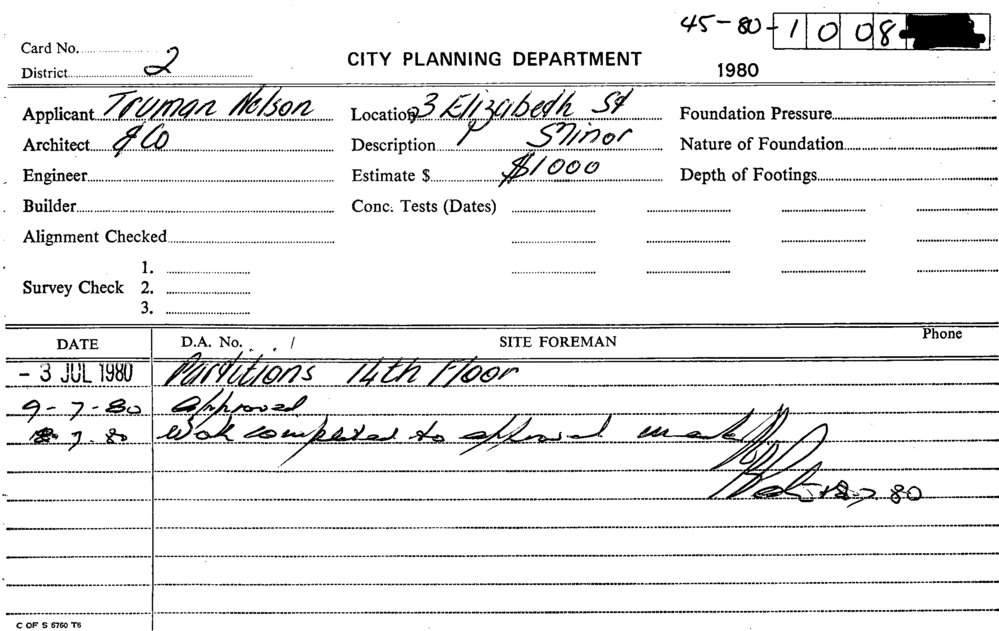 45-80-1008
Card No.
District 2
CITY PLANNING DEPARTMENT
1980
Applicant Truman Nelson Location 3 Elizabeth St Foundation Pressure
Architect & Co Description Minor Nature of Foundation
Engineer Estimate $ $1000 Depth of Footings
Builder Conc. Tests (Dates)
Alignment Checked
1.
Survey Check 2.
3.
DATE D.A. No. / SITE FOREMAN Phone
- 3 JUL 1980 Partitions 14th Floor
9-7-80 approved
7.80 Work completed to approval
18-7.80
C OF S 6760 T6